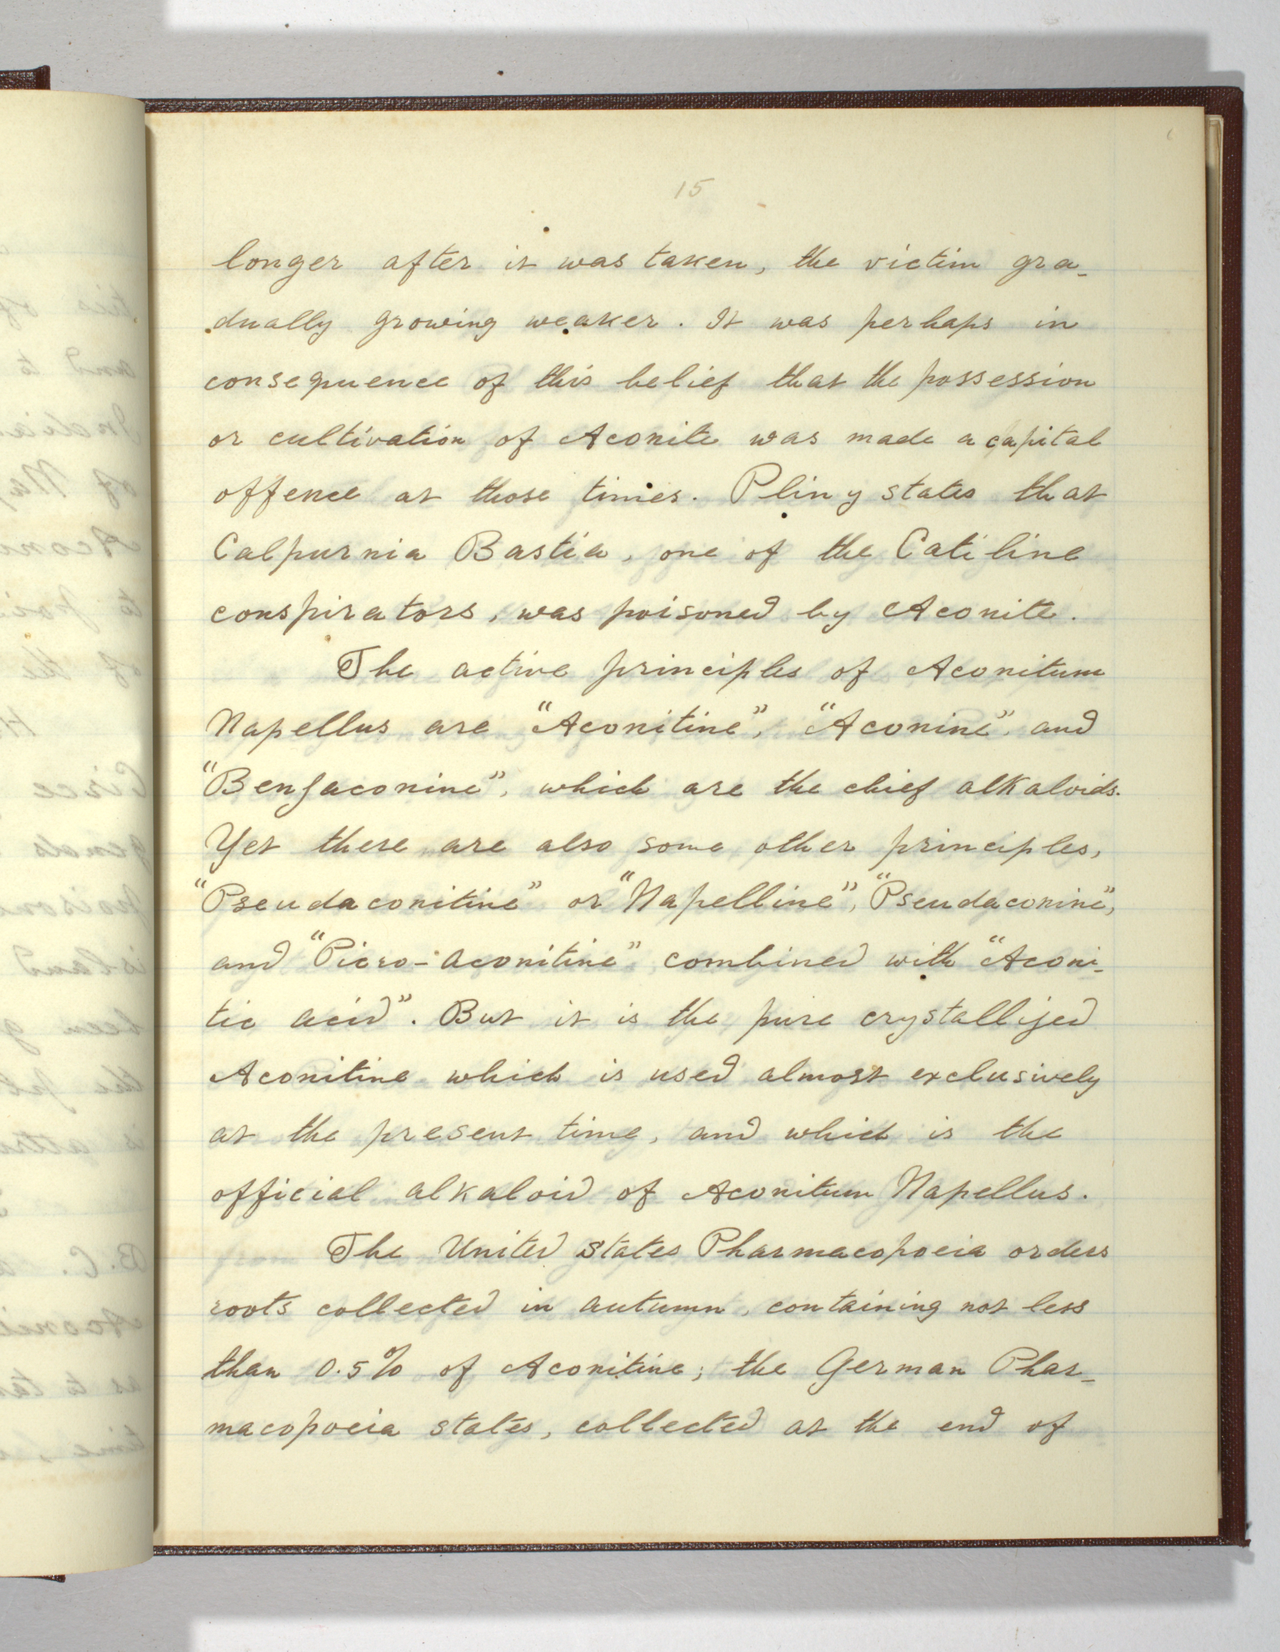 15
longer after it was taken, the victim gra-
dually growing weaker. It was perhaps in
consequence of this belief that the possession
or cultivation of Aconite was made a capital
offence at those times. Pliny states that
Calpurnia Bastia, one of the Catiline
conspirators, was poisoned by Aconite.
The active principles of Aconitum
Napellus are "Aconitine", "Aconine" and
"Benzaconine", which are the chief alkaloids.
Yet there are also some other principles,
"Pseudaconitine" or "Napelline", "Pseudaconine",
and "Picro-aconitine" combined with "Aconi-
tic acid". But it is the pure crystallized
Aconitine which is used almost exclusively
at the present time, and which is the
official alkaloid of Aconitum Napellus.
The United States Pharmacopoeia orders
roots collected in autumn, containing not less
than 0.5% of Aconitine; the German Phar-
macopoeia states, collected at the end of